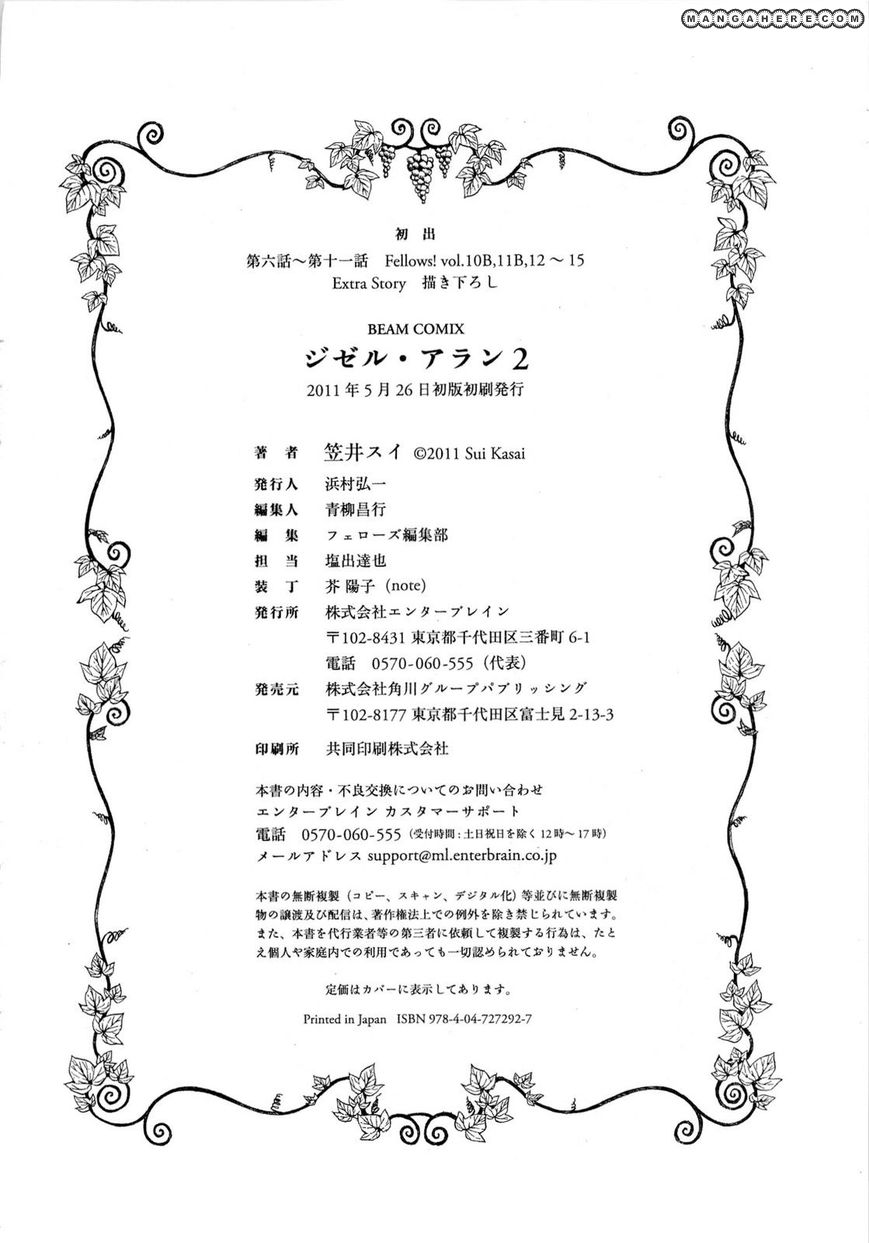 MANGAHERE.COM
初 出
第六話～第十一話 Fellows! vol.10B,11B,12 ～ 15
Extra Story 描き下ろし
BEAM COMIX
ジゼル・アラン 2
2011 年 5 月 26 日初版初刷発行
著 者 笠井スイ ©2011 Sui Kasai
発行人 浜村弘一
編集人 青柳昌行
編 集 フェローズ編集部
担 当 塩出達也
装 丁 芥 陽子（note）
発行所 株式会社エンターブレイン
〒102-8431 東京都千代田区三番町 6-1
電話 0570-060-555（代表）
発売元 株式会社角川グループパブリッシング
〒102-8177 東京都千代田区富士見 2-13-3
印刷所 共同印刷株式会社
本書の内容・不良交換についてのお問い合わせ
エンターブレイン カスタマーサポート
電話 0570-060-555（受付時間：土日祝日を除く 12 時～ 17 時）
メールアドレス support@ml.enterbrain.co.jp
本書の無断複製（コピー、スキャン、デジタル化）等並びに無断複製
物の譲渡及び配信は、著作権法上での例外を除き禁じられています。
また、本書を代行業者等の第三者に依頼して複製する行為は、たと
え個人や家庭内での利用であっても一切認められておりません。
定価はカバーに表示してあります。
Printed in Japan ISBN 978-4-04-727292-7